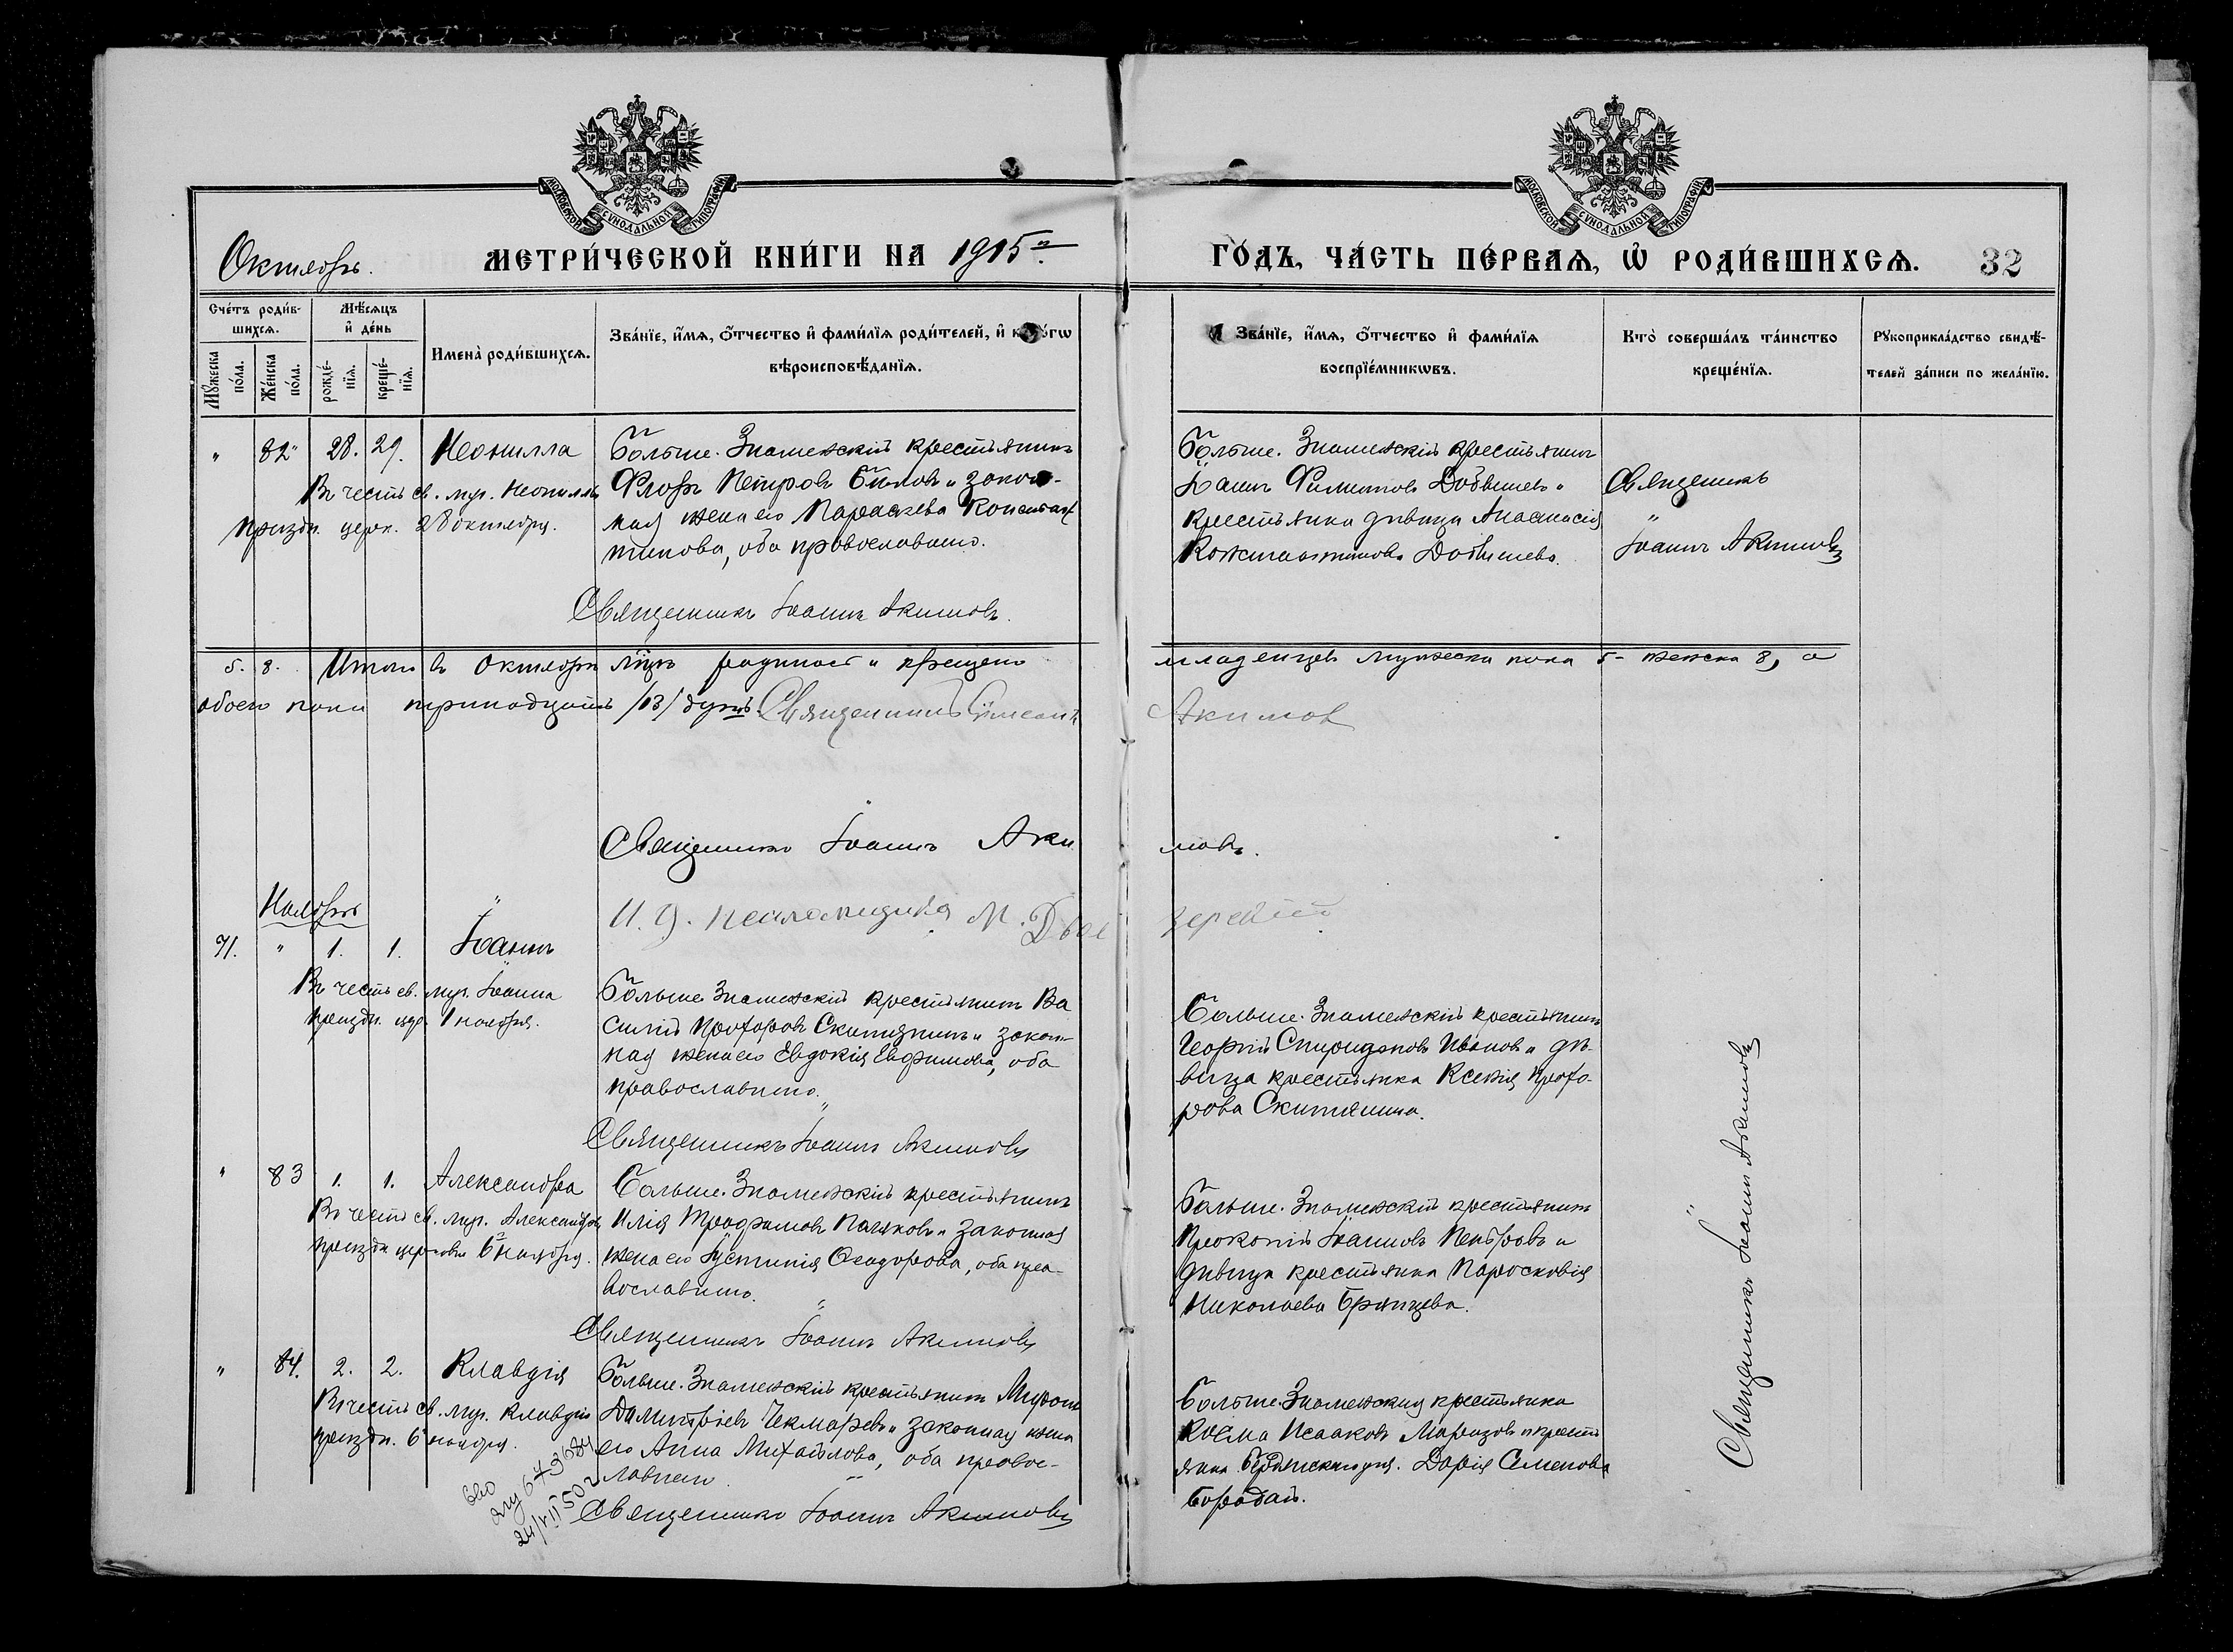 МОСКОВСКОЙ СѴНОДАЛЬНОЙ ТИПОГРАФІИ
МОСКОВСКОЙ СѴНОДАЛЬНОЙ ТИПОГРАФІИ
Октябрь.
МЕТРИ́ЧЕСКОЙ КНИ́ГИ НА 1915 г.
ГО́ДЪ, ЧА́СТЬ ПЕ́РВАѦ, Ѡ҆ РОДИ́ВШИХСѦ. 32
Сче́тъ роди́в-
шихсѧ.
Мѣ́сѧцъ
и҆ де́нь
Мꙋ́жеска
по́ла.
Же́нска
по́ла.
рожде́-
нїѧ.
креще́-
нїѧ.
Имена̀ роди́вшихсѧ.
Зва́нїе, и҆́мѧ, ѻ҆́тчество и҆ фами́лїѧ роди́телей, и҆
вѣроисповѣ́данїѧ.
Зва́нїе, и҆́мѧ, ѻ҆́тчество и҆ фами́лїѧ
воспрїе́мникѡвъ.
Кто̀ соверша́лъ та́инство
креще́нїѧ.
Рꙋкоприкла́дство свидѣ́-
телей за́писи по жела́нїю.
" 82 28. 29. Неонилла
Въ честь св. муч. Неониллы
праздн. церк. 28 октября.
Больше-Знаменскій крестьянинъ
Флоръ Петровъ и закон-
ная жена его Параскева Констан-
тинова, оба православные.
Священникъ Іоаннъ Акимовъ.
Больше-Знаменскій крестьянинъ
Іоаннъ и
крестьянка дѣвица Анастасія
Константинова
Священникъ
"
Іоаннъ Акимовъ
5. 8. Итого въ Октябрѣ мѣцѣ родилось и крещено младенцевъ мужеска пола 5 - женска 8, а
обоего пола тринадцать /13/ душъ. Священникъ Симеонъ Акимов
Священникъ Іоаннъ Акимовъ.
И. д. псаломщика М.
Ноябрь
71. " 1. 1. Іоаннъ
Въ честь св. муч. Іоанна
праздн. церк. 1 ноября.
Больше-Знаменскій крестьянинъ Ва-
силій Прохоровъ Скитянинъ и закон-
ная жена его Евдокія Евфимова, оба
православные.
Священникъ Іоаннъ Акимовъ
Больше-Знаменскій крестьянинъ
Георгій Спиридоновъ Ивановъ и дѣ-
вица крестьянка Ксенія Прохо-
рова Скитянина.
" 83 1. 1. Александра
Въ честь св. муч. Александры
праздн. церковью 6 ноября.
Больше-Знаменскій крестьянинъ
Илія Трофимовъ и законная
жена его Іустинія Ѳеодорова, оба пра-
вославные.
Священникъ Іоаннъ Акимовъ
Больше-Знаменскій крестьянинъ
Прокопій Іоанновъ Петровъ и
дѣвица крестьянка Парасковія
Николаева Брянцева.
" 84. 2. 2. Клавдія
Въ честь св. муч. Клавдіи
праздн. 6 ноября.
Больше-Знаменскій крестьянинъ Миронъ
Димитріевъ Чекмаревъ и законная жена
его Анна Михайлова, оба правос-
лавные.
Священникъ Іоаннъ Акимовъ
Больше-Знаменскій крестьянинъ
Косма Исааковъ и кресть-
янка Бердянскаго у. Дарія Семенова
Бородай.
Священникъ Іоаннъ Акимовъ
673684